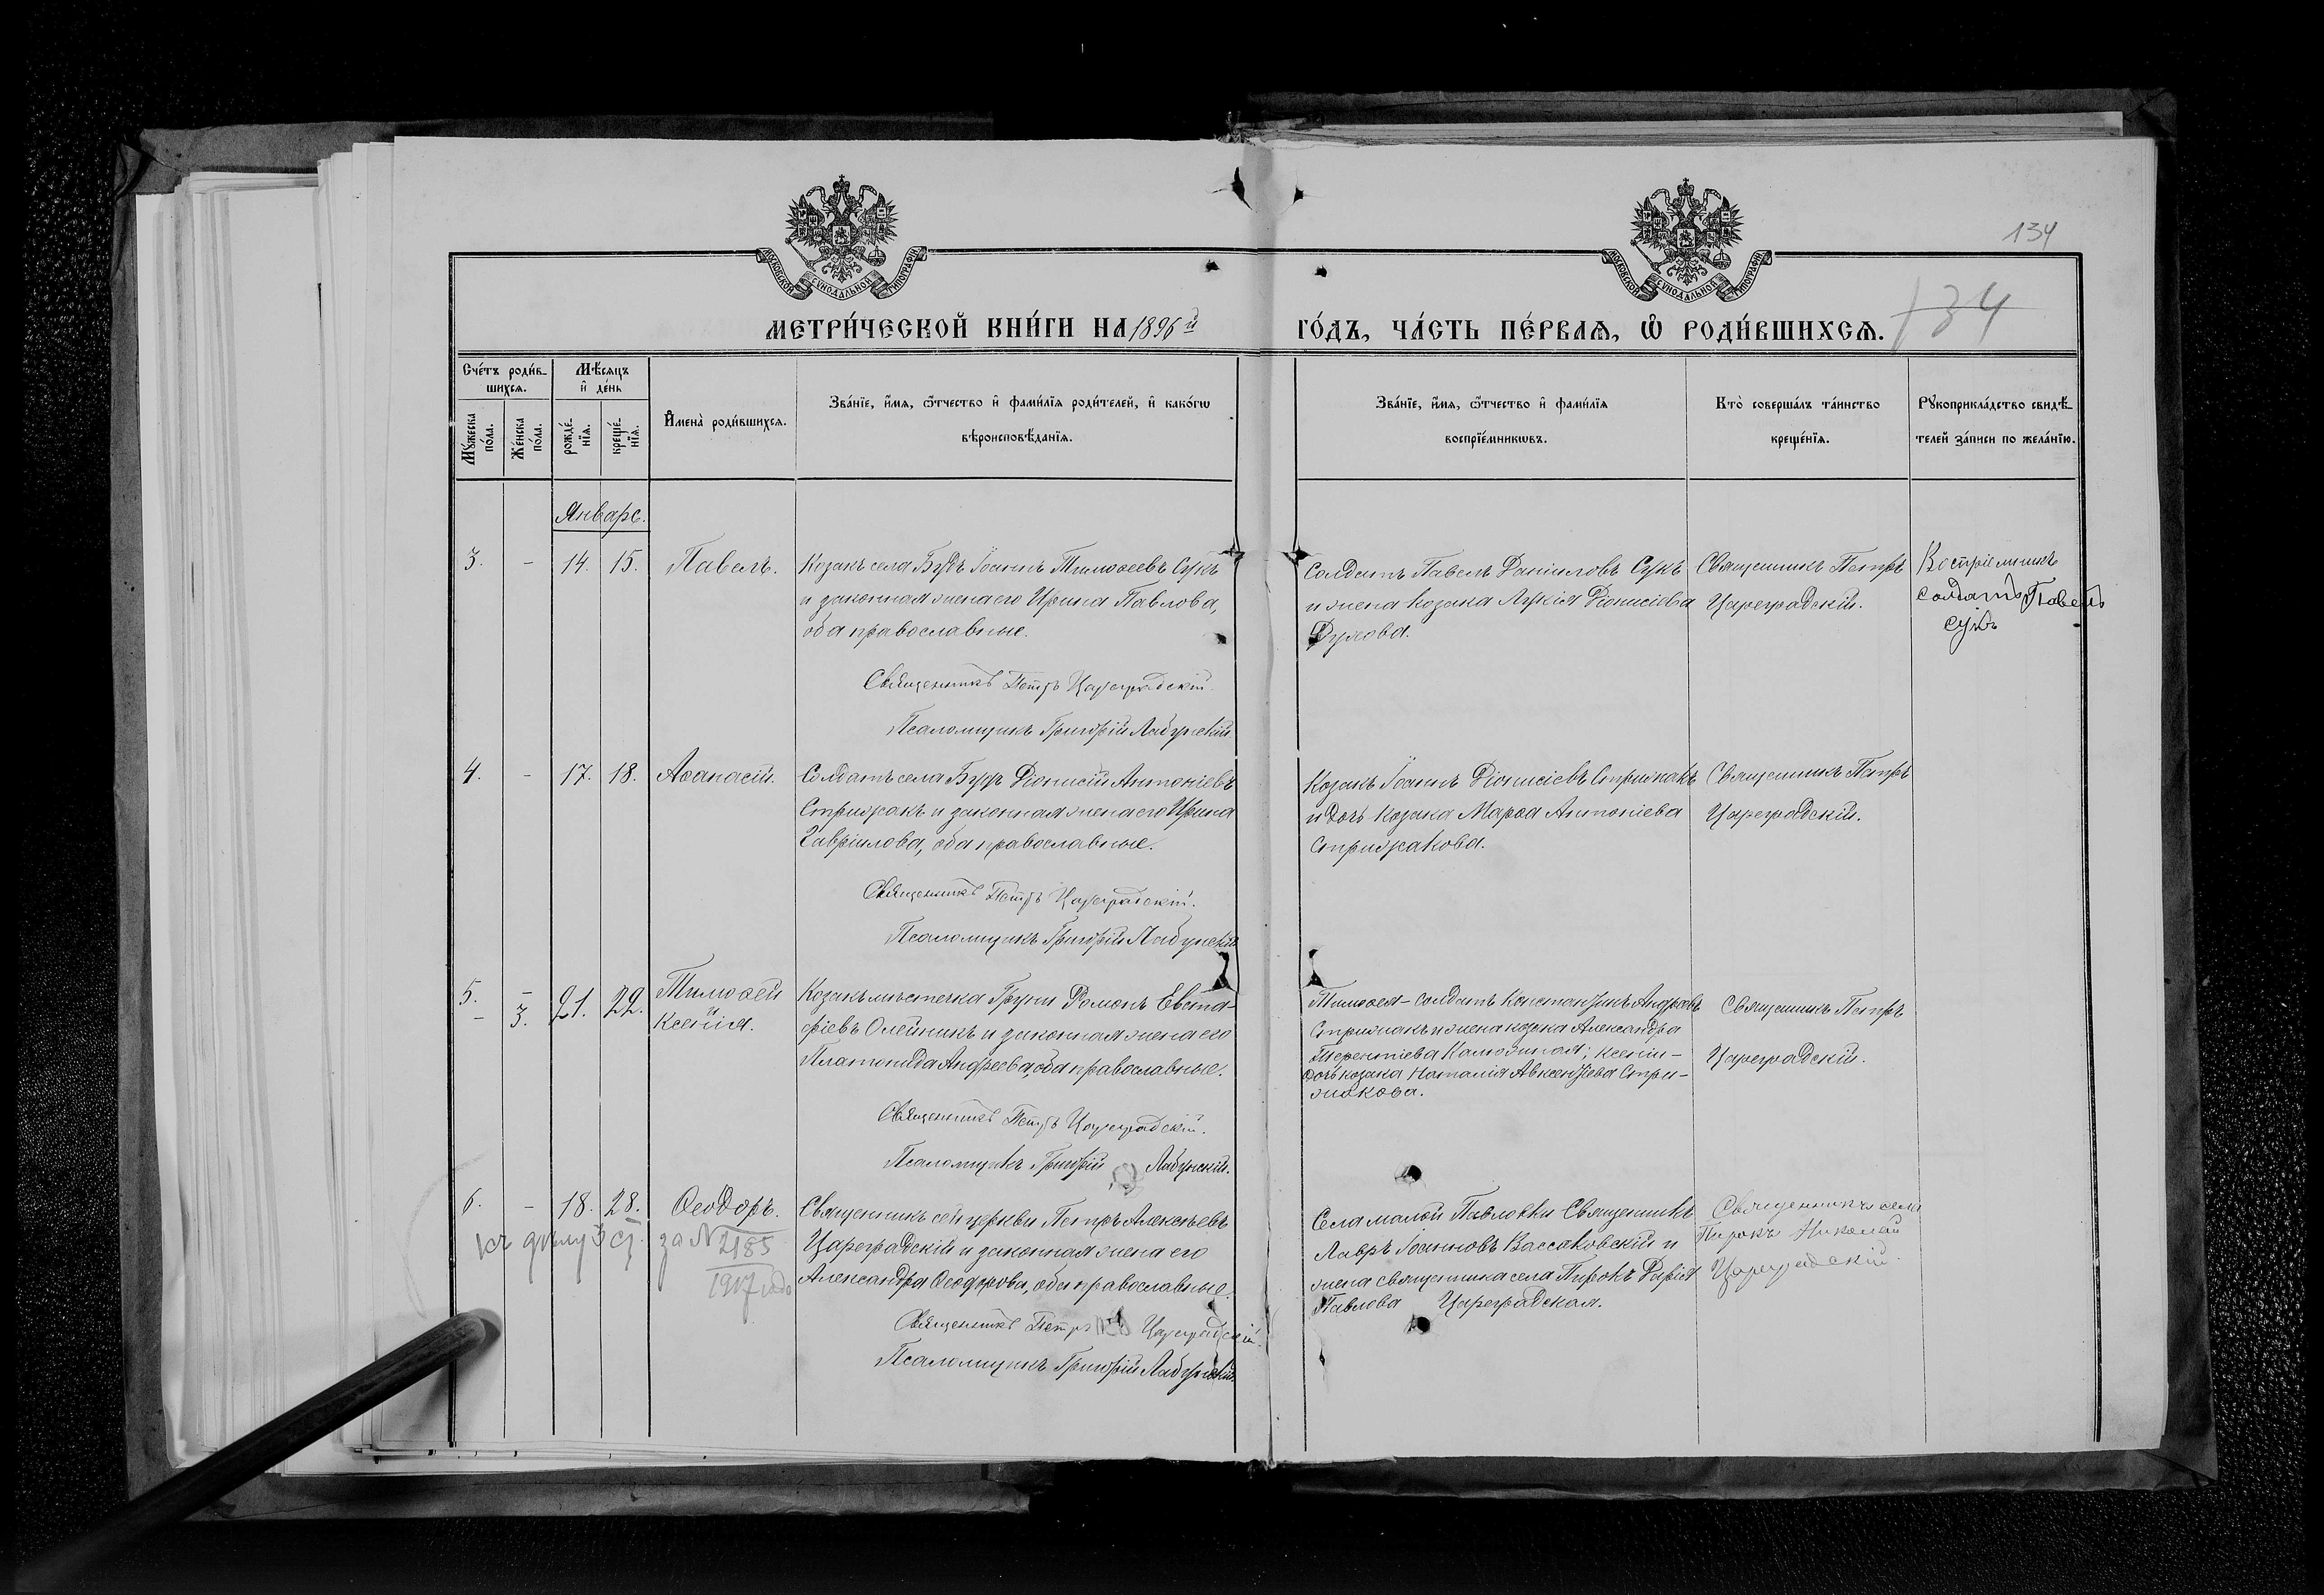 МОСКОВСКОЙ СѴНОДАЛЬНОЙ ТИПОГРАФІИ
МОСКОВСКОЙ СѴНОДАЛЬНОЙ ТИПОГРАФІИ
134
134
МЕТРИ́ЧЕСКОЙ КНИ́ГИ НА 1896й
ГО́ДЪ, ЧА́СТЬ ПЕ́РВАѦ, Ѡ҆ РОДИ́ВШИХСѦ.
Сче́тъ роди́в-
шихсѧ.
Мѣ́сѧцъ
и҆ де́нь
Мꙋ́жеска
по́ла.
Же́нска
по́ла.
рожде́-
нїѧ.
креще́-
нїѧ.
И҆мена̀ роди́вшихсѧ.
Зва́нїе, и҆́мѧ, ѻ҆́тчество и҆ фами́лїѧ роди́телей, и҆ како́гѡ
вѣроисповѣ́данїѧ.
Зва́нїе, и҆́мѧ, ѻ҆́тчество и҆ фами́лїѧ
воспрїе́мникѡвъ.
Кто̀ соверша́лъ та́инство
креще́нїѧ.
Рꙋкоприкла́дство свидѣ́-
телей за́писи по жела́нїю.
Январь.
3. - 14. 15. Павелъ.
Козакъ села Будъ Іоаннъ Тимоѳеевъ Сукъ
и законная жена его Ирина Павлова,
оба православные.
Священникъ Петръ Цареградскій.
Псаломщикъ Григорій Лабунскій.
Солдатъ Павелъ Даніиловъ Сукъ
и жена козака Лукія Діонисіева
Священникъ Петръ
Цареградскій.
Воспріемникъ
солдатъ Павелъ
Сукъ
4. - 17. 18. Аѳанасій.
Солдатъ села Будъ Діонисій Антоніевъ
Стрижакъ и законная жена его Ирина
Гавріилова, оба православные.
Священникъ Петръ Цареградскій.
Псаломщикъ Григорій Лабунскій.
Козакъ Іоаннъ Діонисіевъ Стрижакъ
и дочь козака Марѳа Антоніева
Стрижакова.
Священникъ Петръ
Цареградскій.
5. - 21. 22. Тимоѳей
- 3. и Ксенія.
Козакъ мѣстечка Груни Романъ Евста-
фіевъ Олейникъ и законная жена его
Платонида Андреева, оба православные.
Священникъ Петръ Цареградскій.
Псаломщикъ Григорій Лабунскій.
Тимоѳея - солдатъ Константинъ Андреевъ
Стрижакъ и жена козака Александра
Терентіева Калюжная; Ксеніи -
дочь козака Наталія Авксентіева Стри-
жакова.
Священникъ Петръ
Цареградскій.
6. - 18. 28. Ѳеодоръ.
къ дѣлу 3 ст. за № 2185
1917 года
Священникъ сей церкви Петръ Алексѣевъ
Цареградскій и законная жена его
Александра Ѳеодорова, оба православные.
Священникъ Петръ Цареградскій.
Псаломщикъ Григорій Лабунскій.
Села Малой Павловки Священникъ
Лавръ Іоанновъ Вассаковскій и
жена священника села Пирокъ
Павлова Цареградская.
Священникъ села
Пирокъ Николай
Цареградскій.